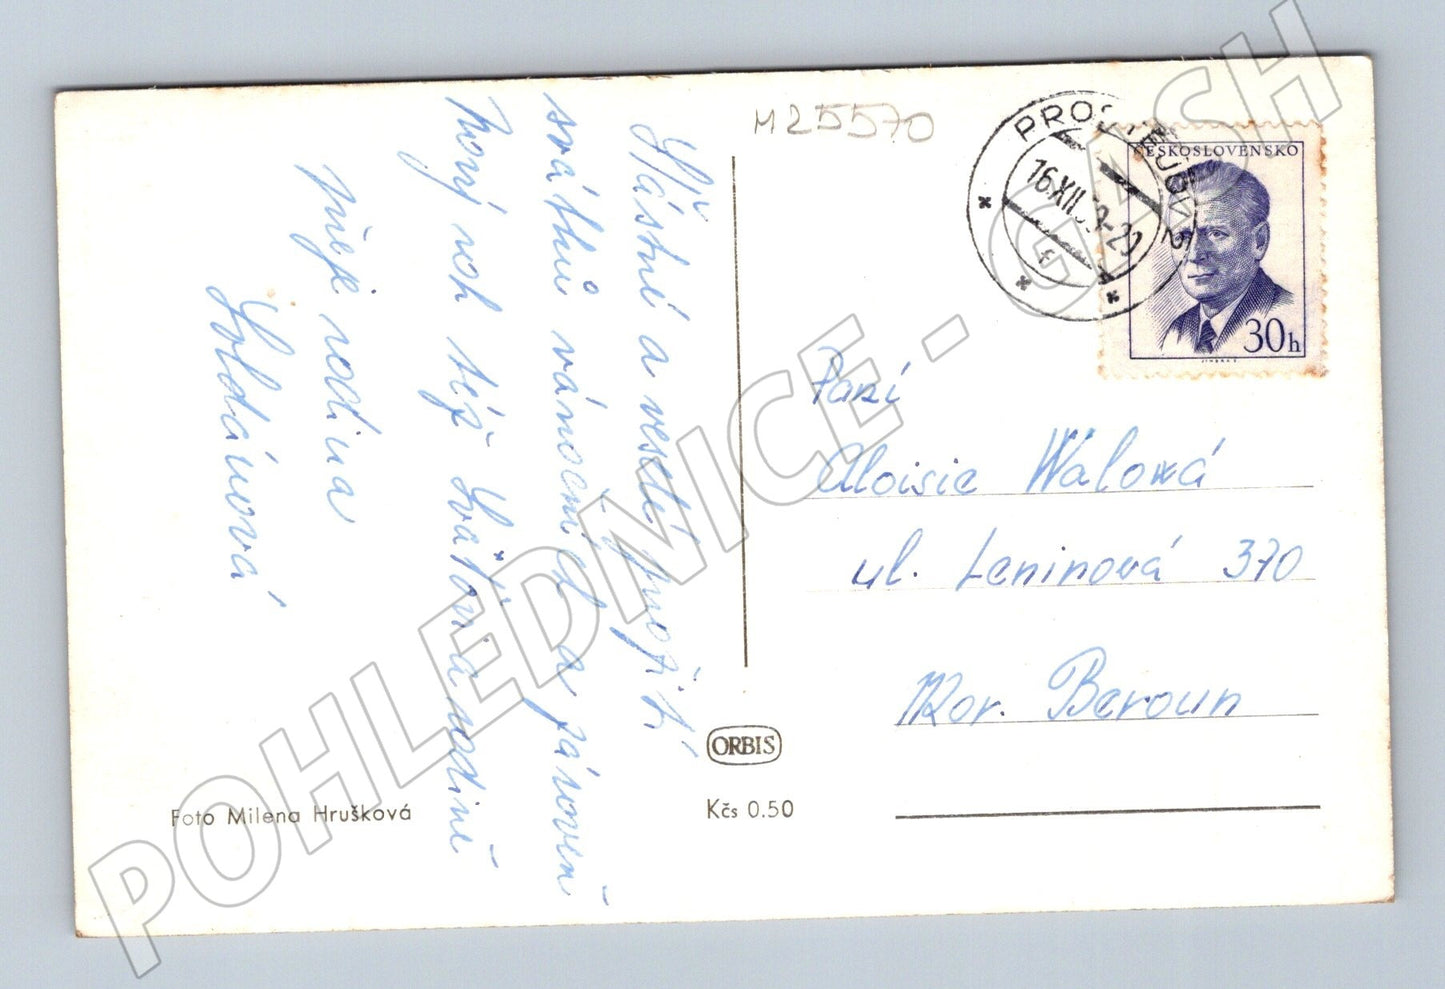 M25570
Šťastné a veselé prožití
svátků vánočních a zároveň
Nový rok též Vaší rodině
přeje rodina
Soldánová
PROSTĚJOV 2
16.XII.59-20
f
ČESKOSLOVENSKO
30h
Paní
Aloisie Walová
ul. Leninová 370
Mor. Beroun
ORBIS
Foto Milena Hrušková
Kčs 0.50
POHLEDNICE - GASH